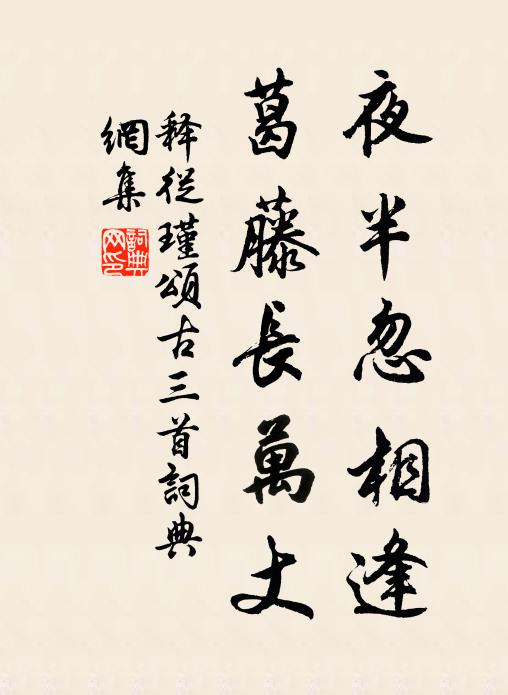 夜半忽相逢
葛藤長萬丈
释從瑾頌古三首詞典
網集
詞典網印